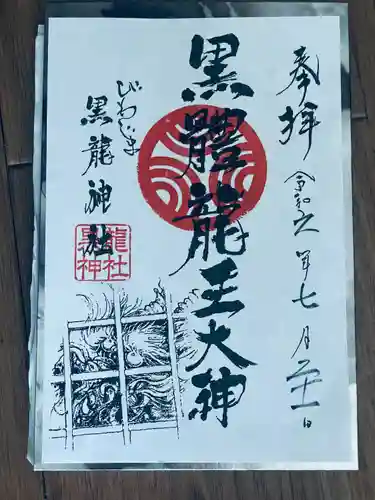 奉拝 令和六年七月二十一日
黒體龍王大神
びわじま
黒龍神社
黒龍
神社